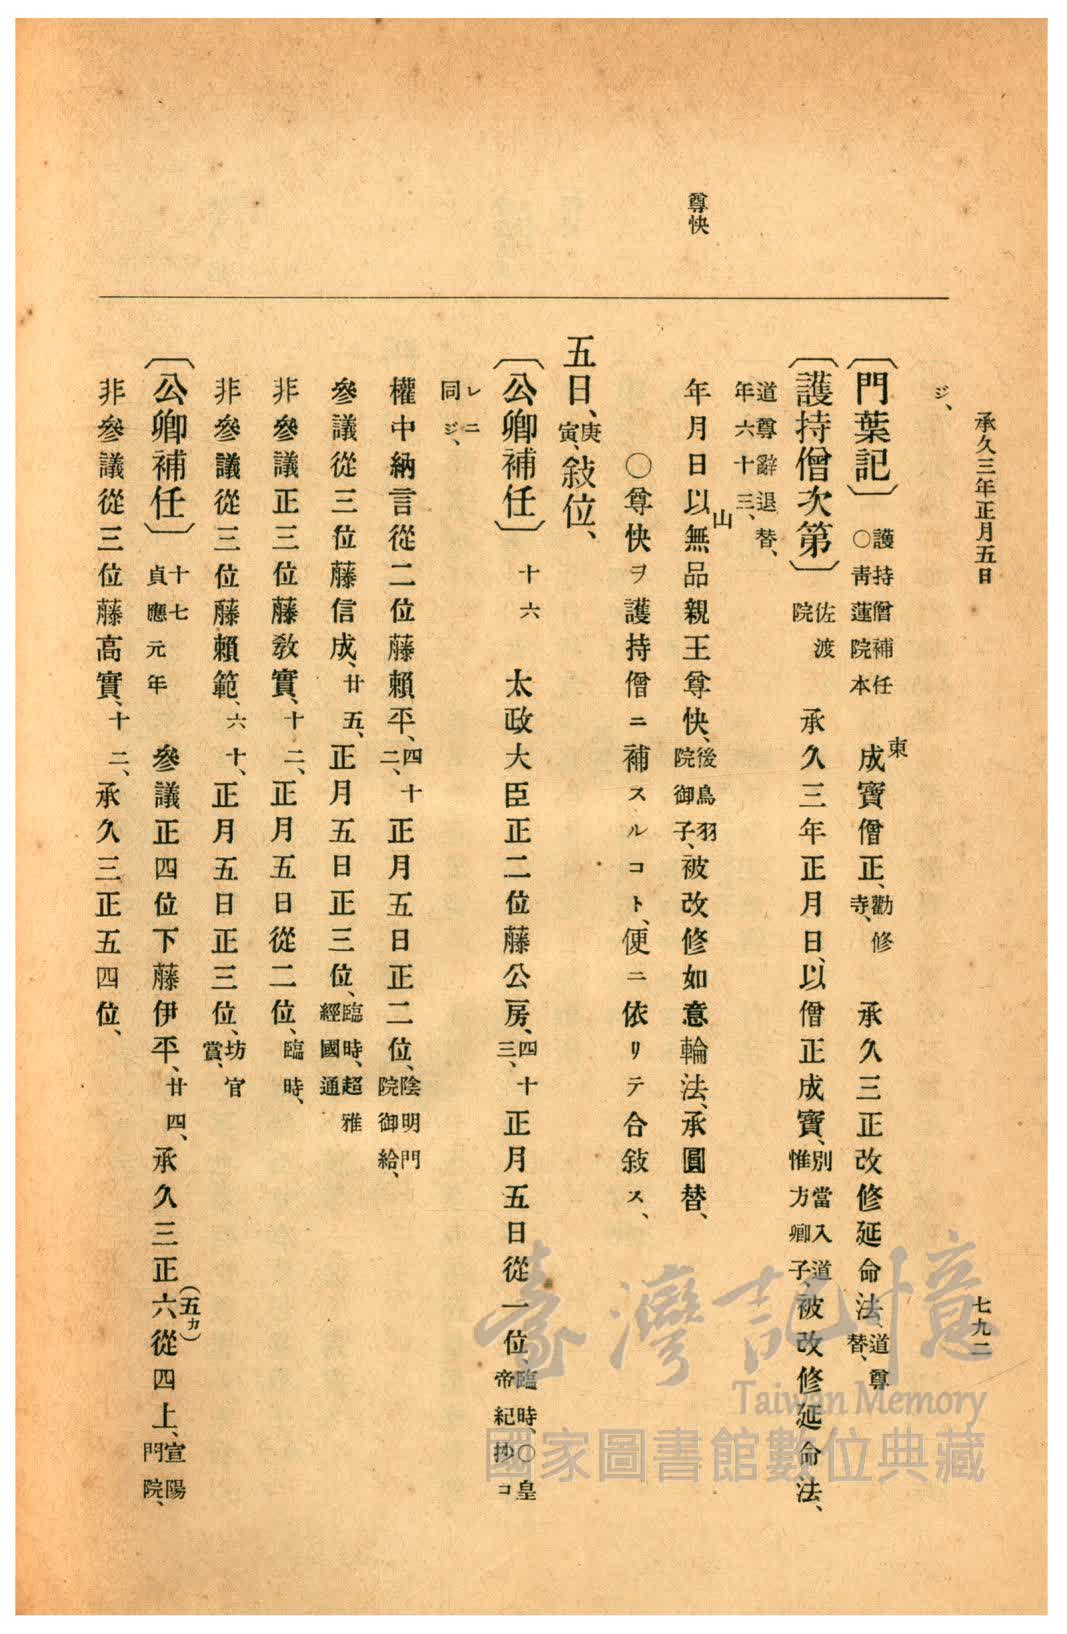 承久三年正月五日
七九二
尊快
ジ、
〔門葉記〕護持僧補任○青蓮院本 成寶僧正、勸修寺、東 承久三正改修延命法、道尊替、
〔護持僧次第〕佐渡院 承久三年正月日、以僧正成寶、別當入道惟方卿子、被改修延命法、
道尊辭退替、年六十三、
年月日以無品親王尊快、山 後鳥羽院御子、被改修如意輪法、承圓替、
○尊快ヲ護持僧ニ補スルコト、便ニ依リテ合敍ス、
五日、庚寅、敍位、
〔公卿補任〕十六 太政大臣正二位藤公房、四十三、正月五日從一位、臨時、○皇帝紀抄コ
レニ同ジ、
權中納言從二位藤賴平、四十二、正月五日正二位、陰明門院御給、
參議從三位藤信成、廿五、正月五日正三位、臨時、超雅經國通
非參議正三位藤敎實、十二、正月五日從二位、臨時、
非參議從三位藤賴範、六十、正月五日正三位、坊官賞、
〔公卿補任〕十七貞應元年 參議正四位下藤伊平、廿四、承久三正六(五カ)從四上、宣陽門院、
非參議從三位藤高實、十二、承久三正五四位、
臺灣記憶
Taiwan Memory
國家圖書館數位典藏